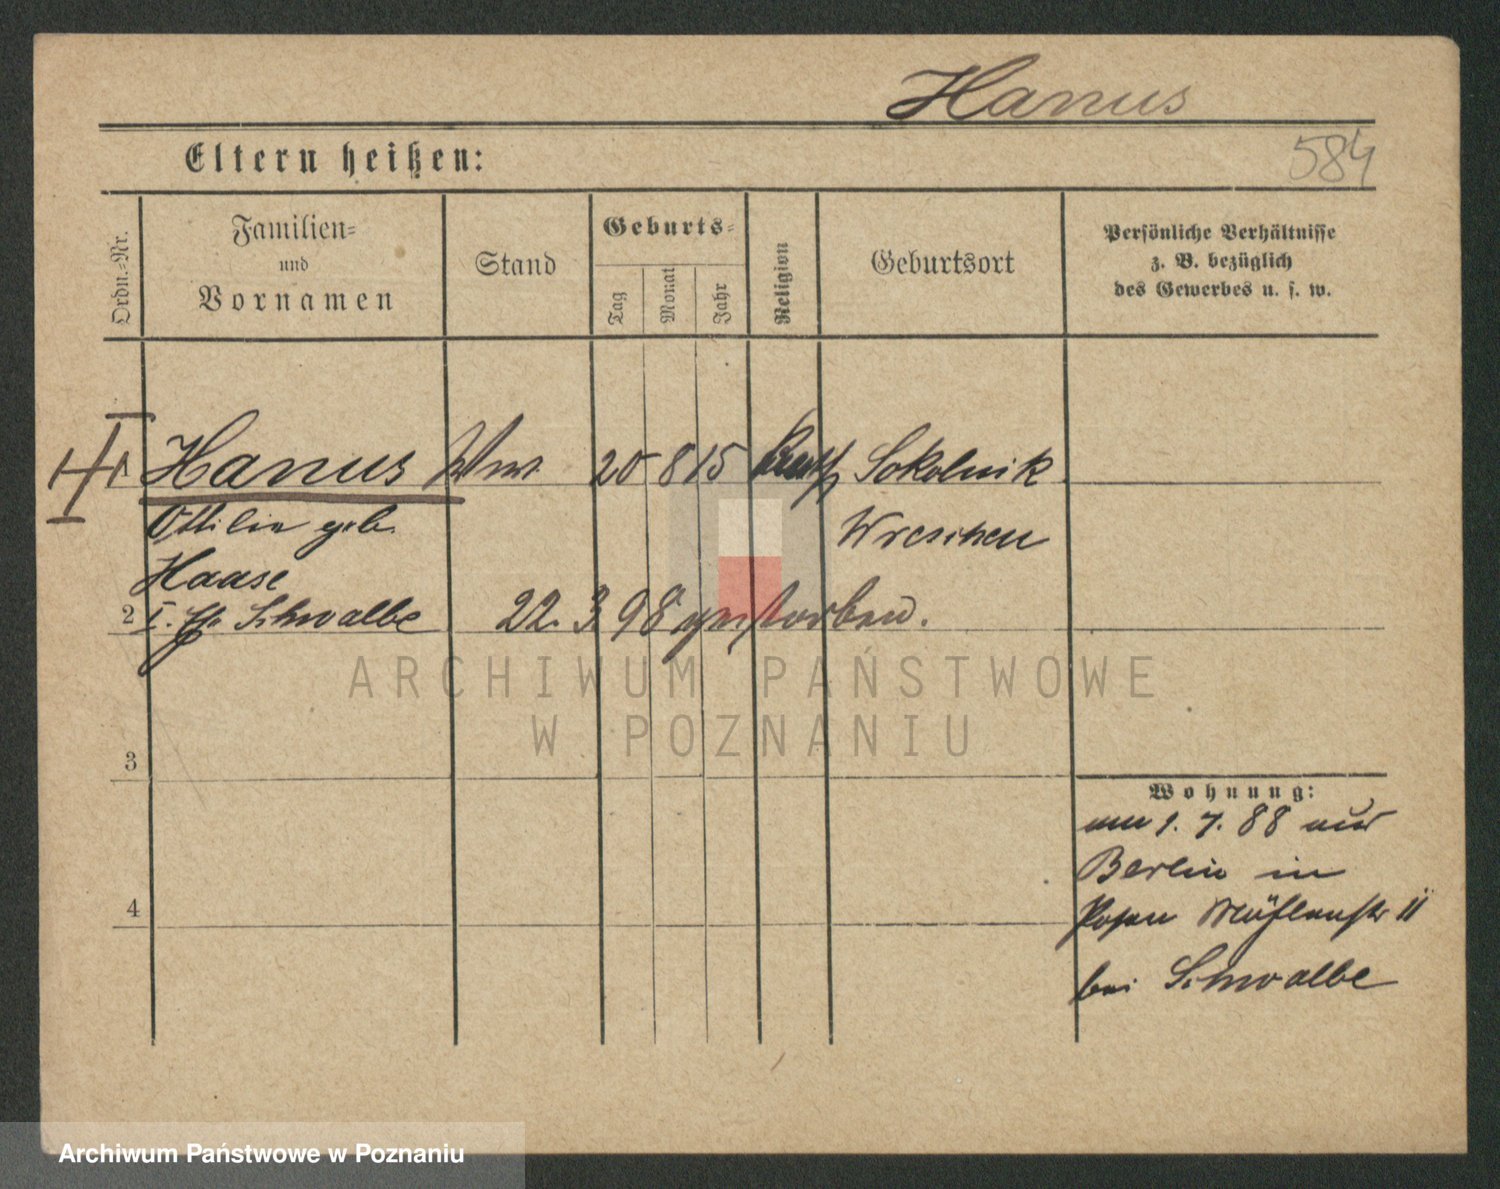 Hanus
584
Eltern heißen:
Ordn.-Nr.
Familien-
und
Vornamen
Stand
Geburts-
Tag
Monat
Jahr
Religion
Geburtsort
Persönliche Verhältnisse
z. B. bezüglich
des Gewerbes u. s. w.
1 Hanus Ww. 20 8 15 kath Sokolnik
Ottilie geb. Wreschen
Haase
2 I. Ehe Schwalbe 22. 3. 98 gestorben.
ARCHIWUM PAŃSTWOWE
W POZNANIU
3
Wohnung:
am 1. 7. 88 aus
Berlin in
4
Posen Mühlenstr 11
bei Schwalbe
Archiwum Państwowe w Poznaniu